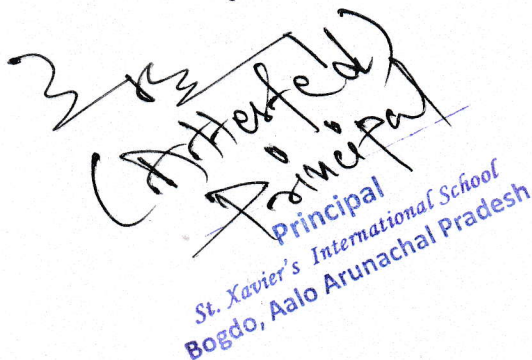 (Attested)
Principal
Principal
St. Xavier's International School
Bogdo, Aalo Arunachal Pradesh